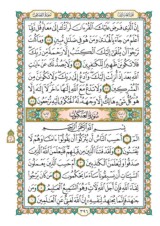 إن الذي فرض عليك القرءان لرادك إلى معاد قل ربي
أعلم من جاء بالهدى ومن هو في ضلال مبين وما كنت
ترجوا أن يلقى إليك الكتاب إلا رحمة من ربك
فلا تكونن ظهيرا للكافرين ولا يصدنك عن ءايات
الله بعد إذ أنزلت إليك وادع إلى ربك ولا تكونن من
المشركين ولا تدع مع الله إلها ءاخر لا إله إلا هو
كل شيء هالك إلا وجهه له الحكم وإليه ترجعون
سورة العنكبوت
بسم الله الرحمن الرحيم
الم أحسب الناس أن يتركوا أن يقولوا ءامنا وهم لا
يفتنون ولقد فتنا الذين من قبلهم فليعلمن الله الذين
صدقوا وليعلمن الكاذبين أم حسب الذين يعملون
السيئات أن يسبقونا ساء ما يحكمون من كان يرجوا
لقاء الله فإن أجل الله لآت وهو السميع العليم ومن
جاهد فإنما يجاهد لنفسه إن الله لغني عن العالمين
٣٩٦